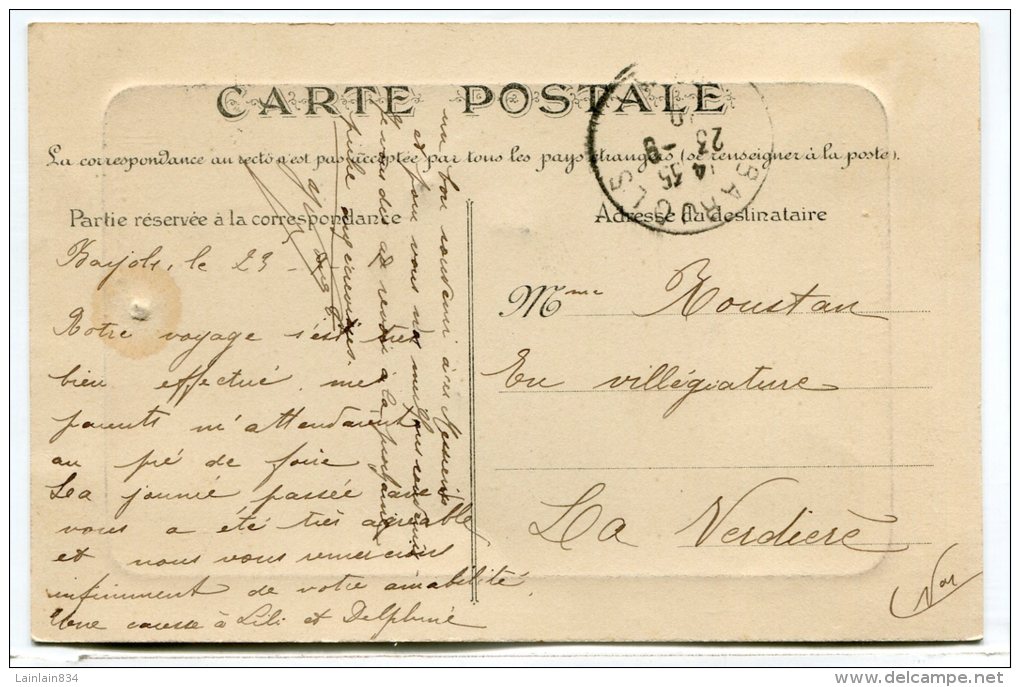 CARTE POSTALE
La correspondance au recto n'est pas acceptée par tous les pays étrangers (se renseigner à la poste).
Partie réservée à la correspondance
Adresse du destinataire
BARJOLS
14 35
23 - 9
Barjols, le 23
Notre voyage s'est très
bien effectué, mes
parents m'attendaient
au pré de foire
La journée passée avec
vous a été très agréable
et nous vous remercions
infiniment de votre amabilité
Une caresse à Lili et Delphine
un bon souvenir à ces Messieurs
et pour vous nos meilleurs souvenirs
Je vous dis au revoir à la prochaine
Mme Roustan
En villégiature
La Verdière
Var
Lainlain834
delcampe.net